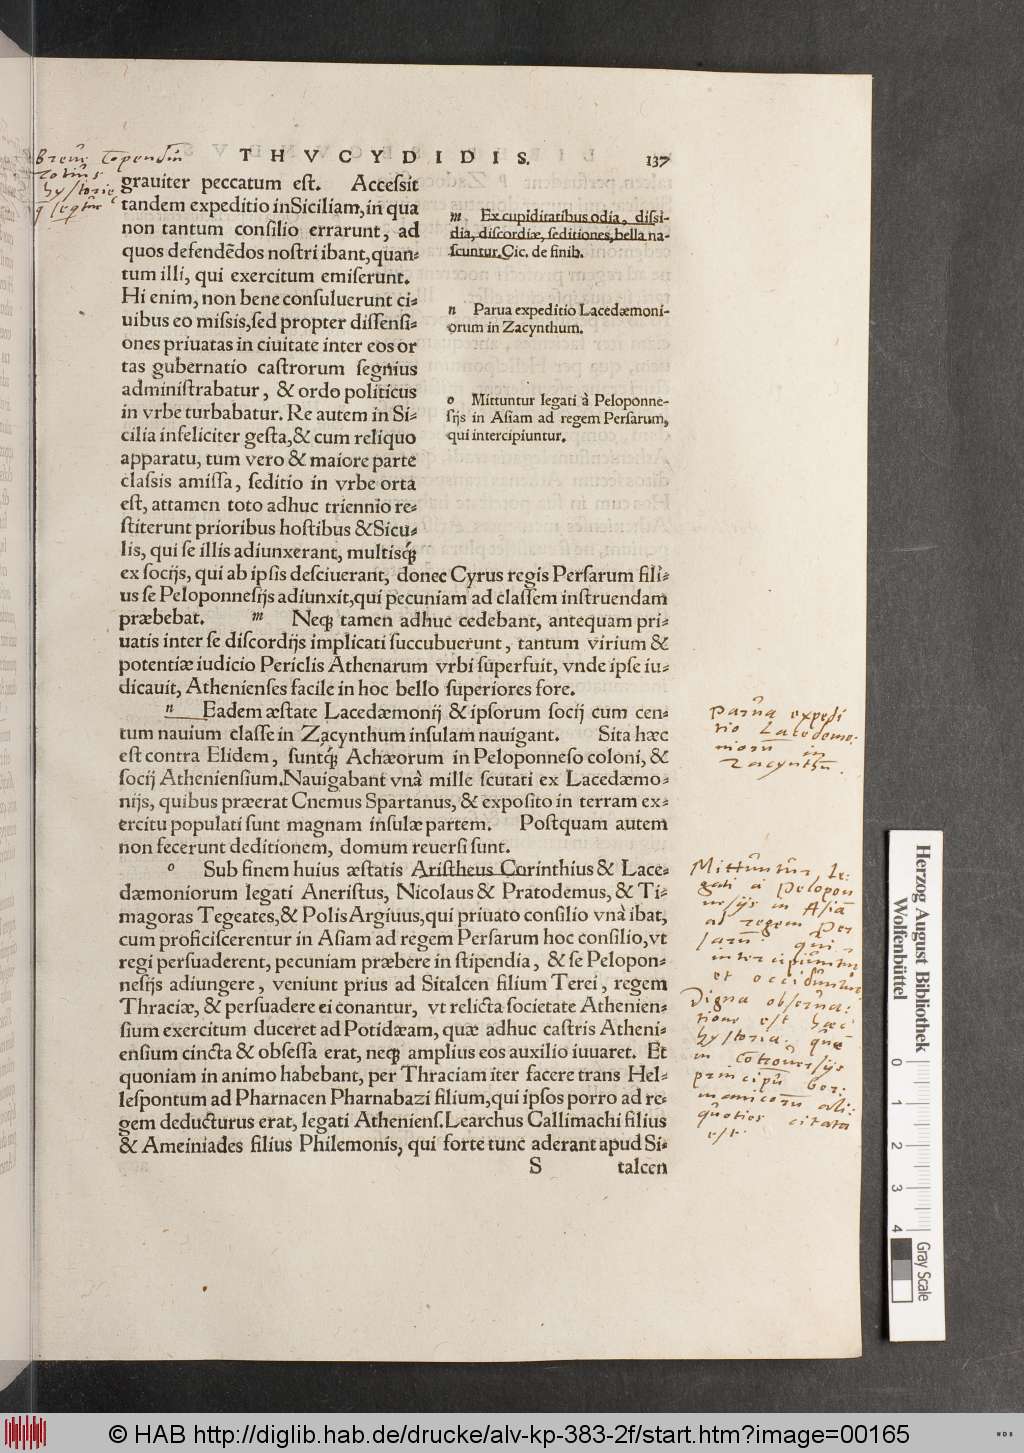 THVCYDIDIS. 137
Breuē Cōpendiū
totius
hystorie
q̄ seqtur
grauiter peccatum est. Accessit
tandem expeditio inSiciliam,in qua
non tantum consilio errarunt, ad
quos defendēdos nostri ibant,quan-
tum illi, qui exercitum emiserunt.
Hi enim, non bene consuluerunt ci-
uibus eo missis,sed propter dissensi-
ones priuatas in ciuitate inter eos or
tas gubernatio castrorum segnius
administrabatur, & ordo politicus
in vrbe turbabatur. Re autem in Si-
cilia infeliciter gesta,& cum reliquo
apparatu, tum vero & maiore parte
classis amissa, seditio in vrbe orta
est, attamen toto adhuc triennio re-
stiterunt prioribus hostibus &Sicu-
lis, qui se illis adiunxerant, multisq́;
ex socijs, qui ab ipsis desciuerant, donec Cyrus regis Persarum fili-
us se Peloponnesijs adiunxit,qui pecuniam ad classem instruendam
præbebat. m Neq; tamen adhuc cedebant, antequam pri-
uatis inter se discordijs implicati succubuerunt, tantum virium &
potentiæ iudicio Periclis Athenarum vrbi superfuit, vnde ipse iu-
dicauit, Athenienses facile in hoc bello superiores fore.
n Eadem æstate Lacedæmonij & ipsorum socij cum cen-
tum nauium classe in Zacynthum insulam nauigant. Sita hæc
est contra Elidem, suntq́; Achæorum in Peloponneso coloni, &
socij Atheniensium.Nauigabant vnà mille scutati ex Lacedæmo-
nijs, quibus præerat Cnemus Spartanus, & exposito in terram ex-
ercitu populati sunt magnam insulæ partem. Postquam autem
non fecerunt deditionem, domum reuersi sunt.
o Sub finem huius æstatis Aristheus Corinthius & Lace-
dæmoniorum legati Aneristus, Nicolaus & Pratodemus, & Ti-
magoras Tegeates,& Polis Argiuus,qui priuato consilio vnà ibat,
cum proficiscerentur in Asiam ad regem Persarum hoc consilio,vt
regi persuaderent, pecuniam præbere in stipendia, & se Pelopon-
nesijs adiungere, veniunt prius ad Sitalcen filium Terei, regem
Thraciæ, & persuadere ei conantur, vt relicta societate Athenien-
sium exercitum duceret ad Potidæam, quæ adhuc castris Atheni-
ensium cincta & obsessa erat, neq; amplius eos auxilio iuuaret. Et
quoniam in animo habebant, per Thraciam iter facere trans Hel-
lespontum ad Pharnacen Pharnabazi filium,qui ipsos porro ad re-
gem deducturus erat, legati Atheniens.Learchus Callimachi filius
& Ameiniades filius Philemonis, qui forte tunc aderant apud Si-
S talcen
m Ex cupiditatibus odia, dissi-
dia, discordiæ, seditiones,bella na-
scuntur. Cic. de finib.
n Parua expeditio Lacedæmoni-
orum in Zacynthum.
o Mittuntur legati à Peloponne-
sijs in Asiam ad regem Persarum,
qui intercipiuntur.
Parua expedi
tio Lacedemo:
niorū in
Zacynthū.
Mittūntūr le:
gati a Pelopon
nesijs in Asiā
ad regem Per
sarū: qui
intercipiūntur
et occidūntur
Digna obserūa:
tione est hæc
hystoria. quæ
in Cōtrouersijs
principū Ger:
manicorū ali:
quoties citata
est.
Herzog August Bibliothek
Wolfenbüttel
0 1 2 3 4
Gray Scale
© HAB http://diglib.hab.de/drucke/alv-kp-383-2f/start.htm?image=00165